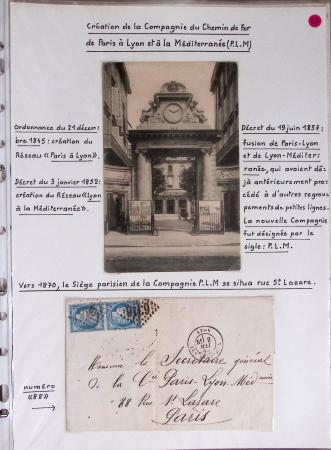 Création de la Compagnie du Chemin de Fer
de Paris à Lyon et à la Méditerranée (P.L.M)
Ordonnance du 21 décem-
bre 1845 : création du
Réseau « Paris à Lyon ».
Décret du 3 janvier 1852:
création du Réseau « Lyon
à la Méditerranée ».
Décret du 19 juin 1857:
fusion de Paris-Lyon
et de Lyon-Méditer-
ranée, qui avaient dé-
jà antérieurement pro-
cédé à d'autres regrou-
pements de petites lignes.
La nouvelle Compagnie
fut désignée par le
sigle : P.L.M.
Vers 1870, le Siège parisien de la Compagnie P.L.M se situa rue St Lazare.
numéro
«88»
LYON
Monsieur le Secrétaire général
de la Cie Paris-Lyon-Méd
88 Rue St Lazare
Paris